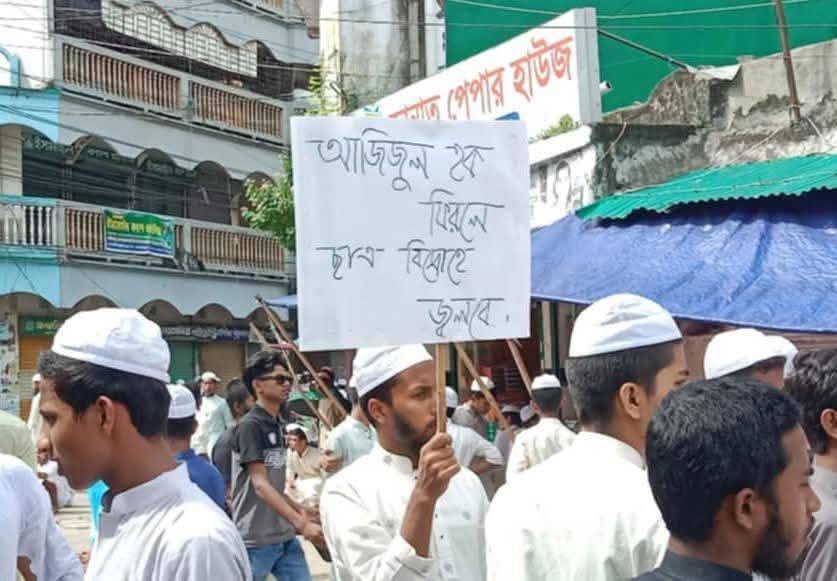 পেপার হাউজ
আজিজুল হক
ফিরলে
ছাত্র বিদ্রোহে
জ্বলবে.